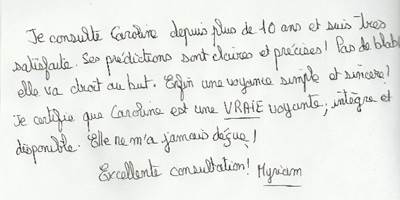 Je consulte Caroline depuis plus de 10 ans et suis très
satisfaite. Ses prédictions sont claires et précises! Pas de blabla
elle va droit au but. Enfin une voyance simple et sincère!
Je certifie que Caroline est une VRAIE voyante, intègre et
disponible. Elle ne m'a jamais déçue!
Excellente consultation! Myriam